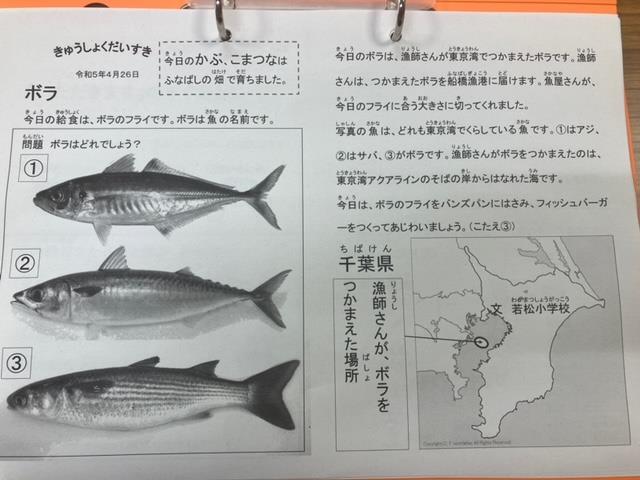 きゅうしょくだいすき
令和5年4月26日
今日のかぶ、こまつなは
ふなばしの畑で育ちました。
ボラ
今日の給食は、ボラのフライです。ボラは魚の名前です。
問題 ボラはどれでしょう？
①
②
③
今日のボラは、漁師さんが東京湾でつかまえたボラです。漁師
さんは、つかまえたボラを船橋漁港に届けます。魚屋さんが、
今日のフライに合う大きさに切ってくれました。
写真の魚は、どれも東京湾でくらしている魚です。①はアジ、
②はサバ、③がボラです。漁師さんがボラをつかまえたのは、
東京湾アクアラインのそばの岸からはなれた海です。
今日は、ボラのフライをバンズパンにはさみ、フィッシュバーガ
ーをつくってあじわいましょう。（こたえ③）
千葉県
漁師さんが、ボラを
つかまえた場所
文 若松小学校